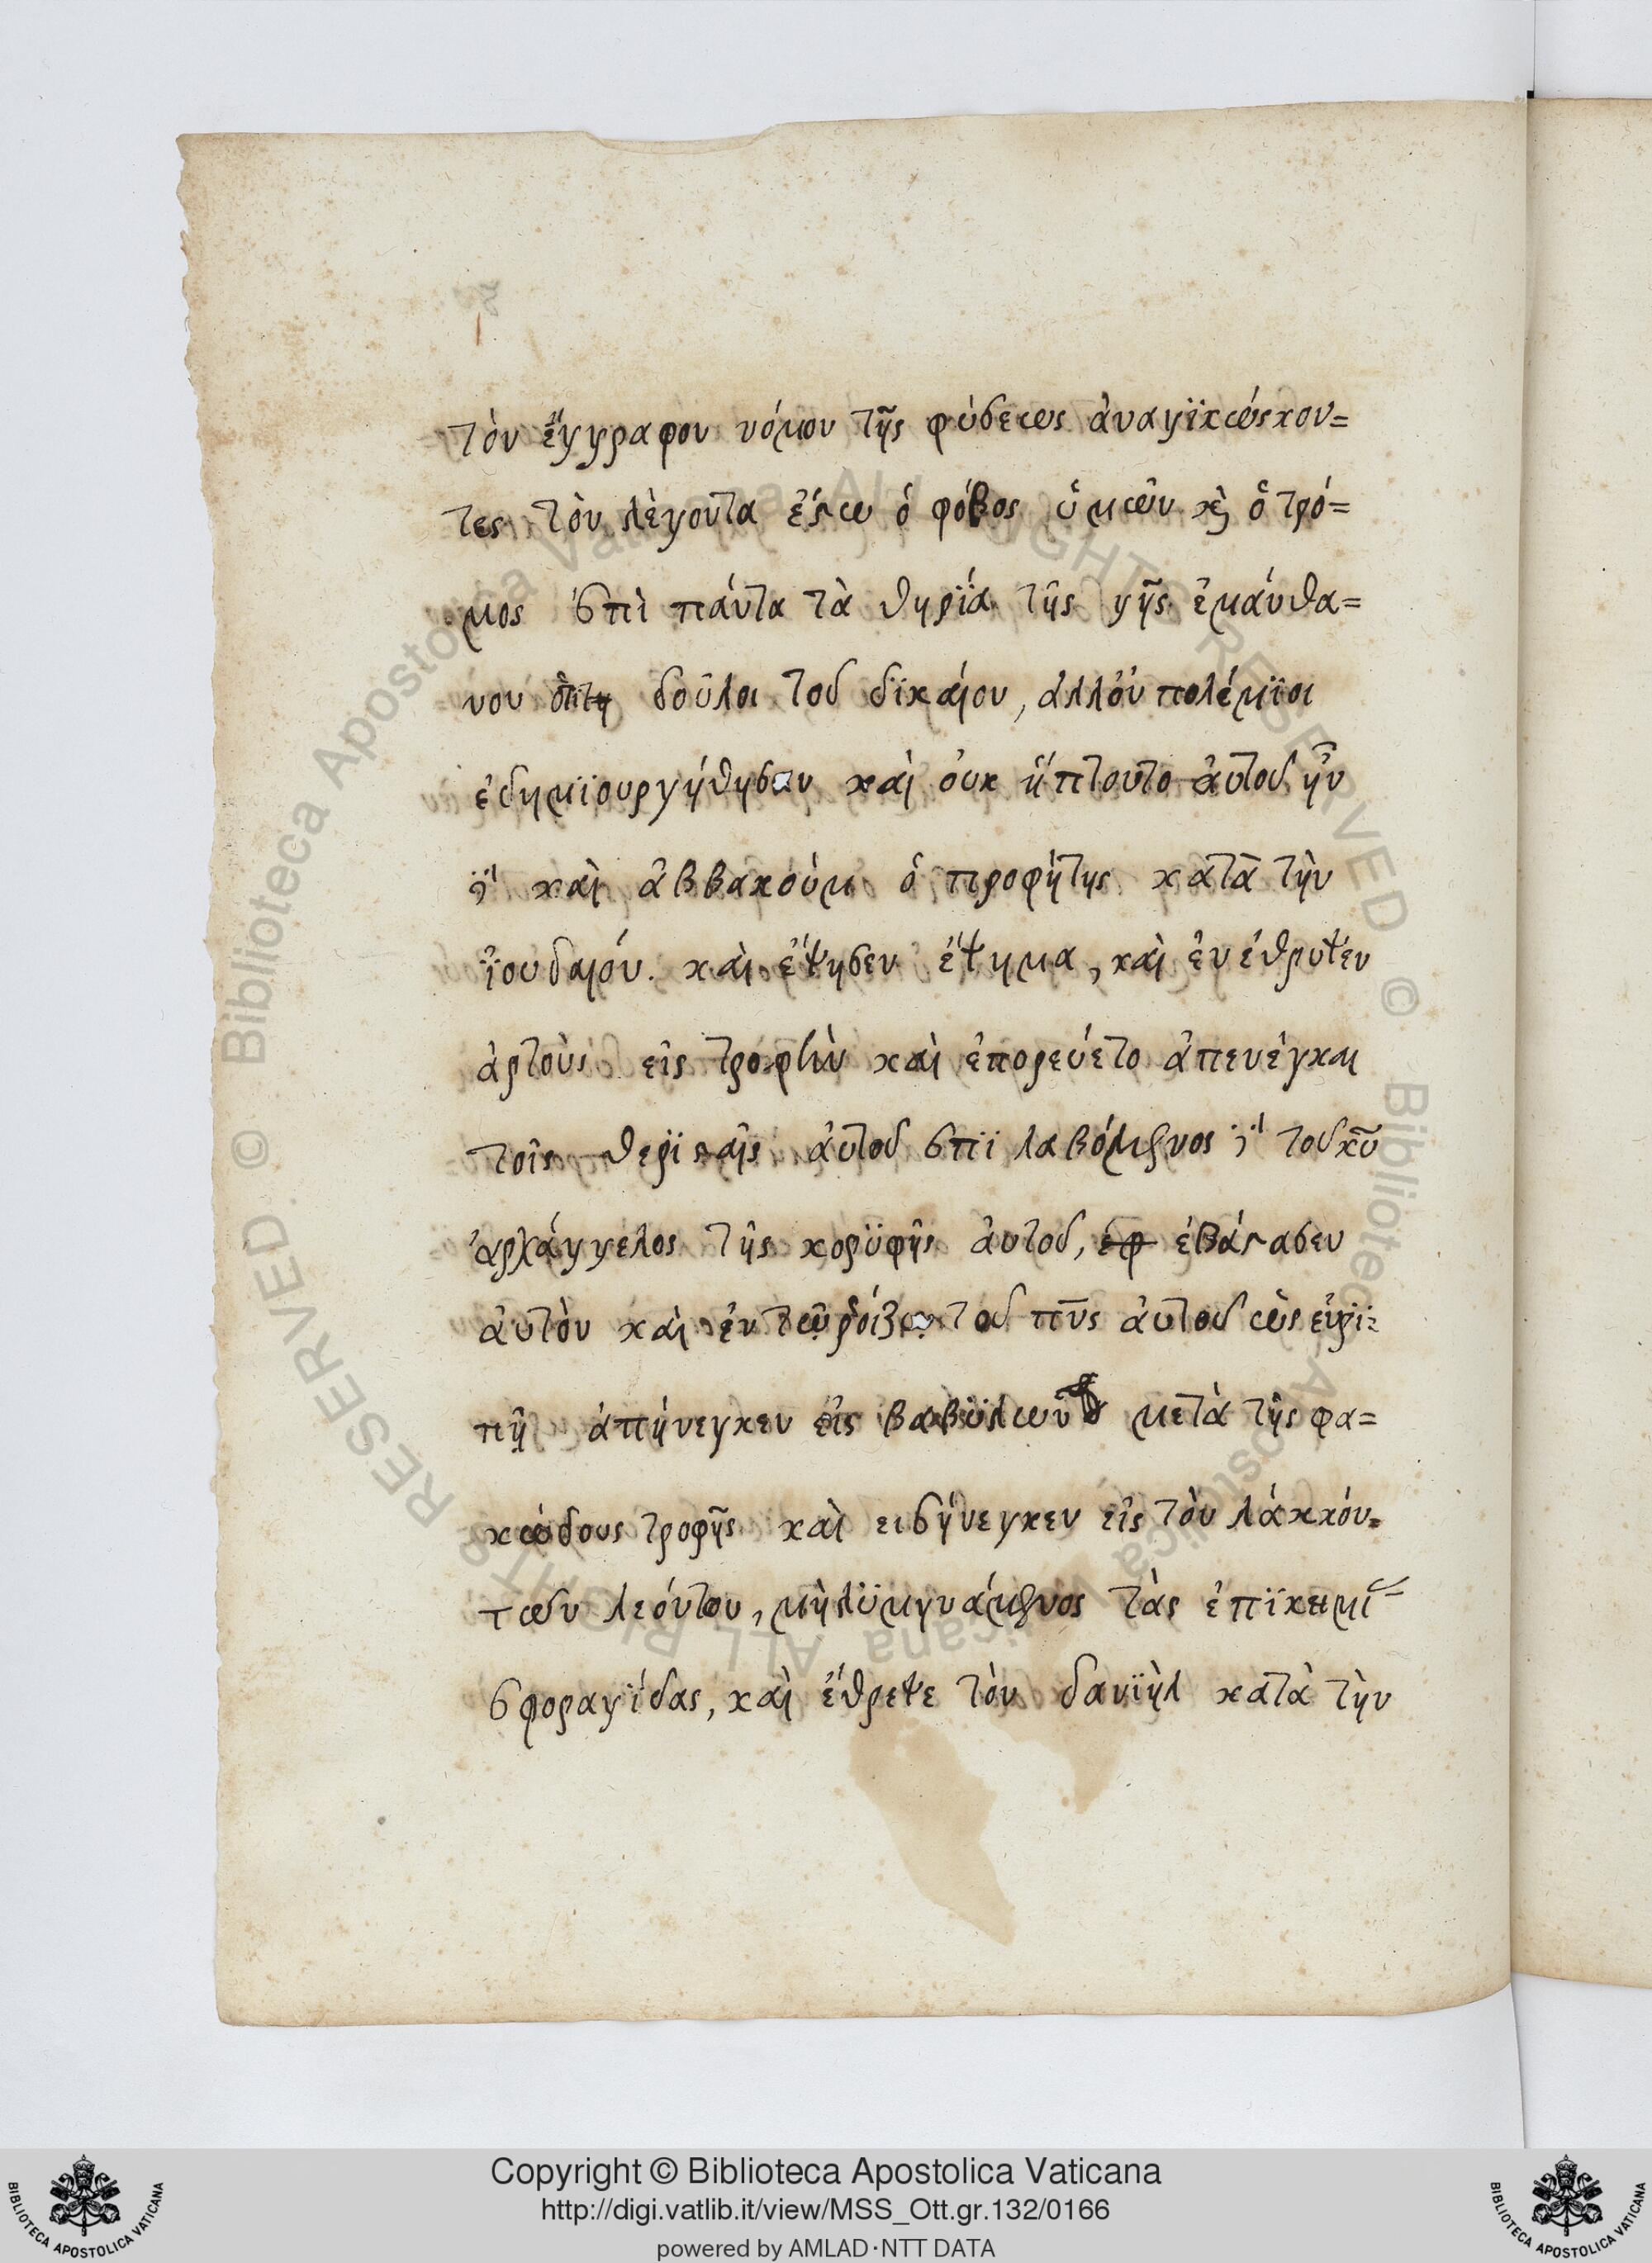 τὸν ἔγγραφον νόμον τῆς φύσεως ἀναγϊκώσκον=
τες τὸν λέγοντα ἔϛω ὁ φόβος ὑμῶν κὴ ὁ τρό=
μος ἐπὶ πάντα τὰ θηρϊά τῆς γῆς ἐμάνθα=
νον δοῦλοι τοῦ δϊκαίου, ἀλλὀν πολέμϊοι
ἐδημϊουργήθησαν καὶ ὀυκ ἥπτοντο ἀυτοῦ ἦν
καὶ ἀββακούμ ὁ προφήτης κατὰ τὴν
ἰουδαιόν. καὶ ἔψησεν ἕψημα, καὶ ἐνέθρυψεν
ἀρτοὺς εἰς τροφὴν καὶ ἐπορεύετο ἀπενέγκαι
τοῖς θερϊσαῖς ἀυτοῦ ἐπϊλαβόμενος τοῦ κῦ
ἀρχάγγελος τῆς κορϋφῆς ἀυτοῦ, ἐβάϛασεν
ἀυτὸν καὶ ἐν τῷ ῥοίζω τοῦ πν̅ς ἀυτοῦ ὡς ἐνρϊ=
πῇ ἀπήνεγκεν εἰς βαβϋλῶν μετὰ τῆς φα=
κώδους τροφῆς καὶ εισήνεγκεν εἰς τὸν λάκκόν=
των λεόντων, μὴ λϋμηνάμενος τὰς ἐπϊκημὶ=
σφοραγϊδας, καὶ ἔθρεψε τὸν δανϊὴλ κατὰ τὴν
Copyright © Biblioteca Apostolica Vaticana
http://digi.vatlib.it/view/MSS_Ott.gr.132/0166
powered by AMLAD·NTT DATA
BIBLIOTECA APOSTOLICA VATICANA
BIBLIOTECA APOSTOLICA VATICANA